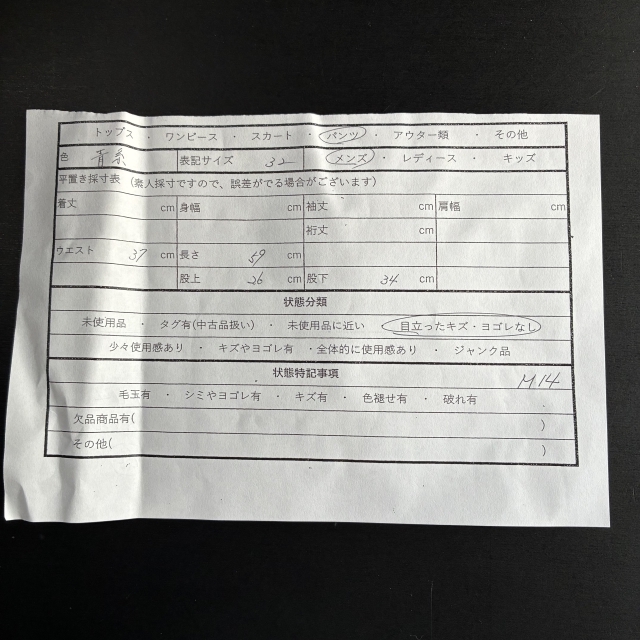 トップス ・ ワンピース ・ スカート ・ パンツ ・ アウター類 ・ その他
色 青系 表記サイズ 32 メンズ ・ レディース ・ キッズ
平置き採寸表 (素人採寸ですので、誤差がでる場合がございます)
着丈 cm 身幅 cm 袖丈 cm 肩幅 cm
裄丈 cm
ウエスト 37 cm 長さ 59 cm
股上 26 cm 股下 34 cm
状態分類
未使用品 ・ タグ有(中古品扱い) ・ 未使用品に近い 目立ったキズ・ヨゴレなし
少々使用感あり ・ キズやヨゴレ有 ・全体的に使用感あり ・ ジャンク品
状態特記事項
M14
毛玉有 ・ シミやヨゴレ有 ・ キズ有 ・ 色褪せ有 ・ 破れ有
欠品商品有( )
その他( )